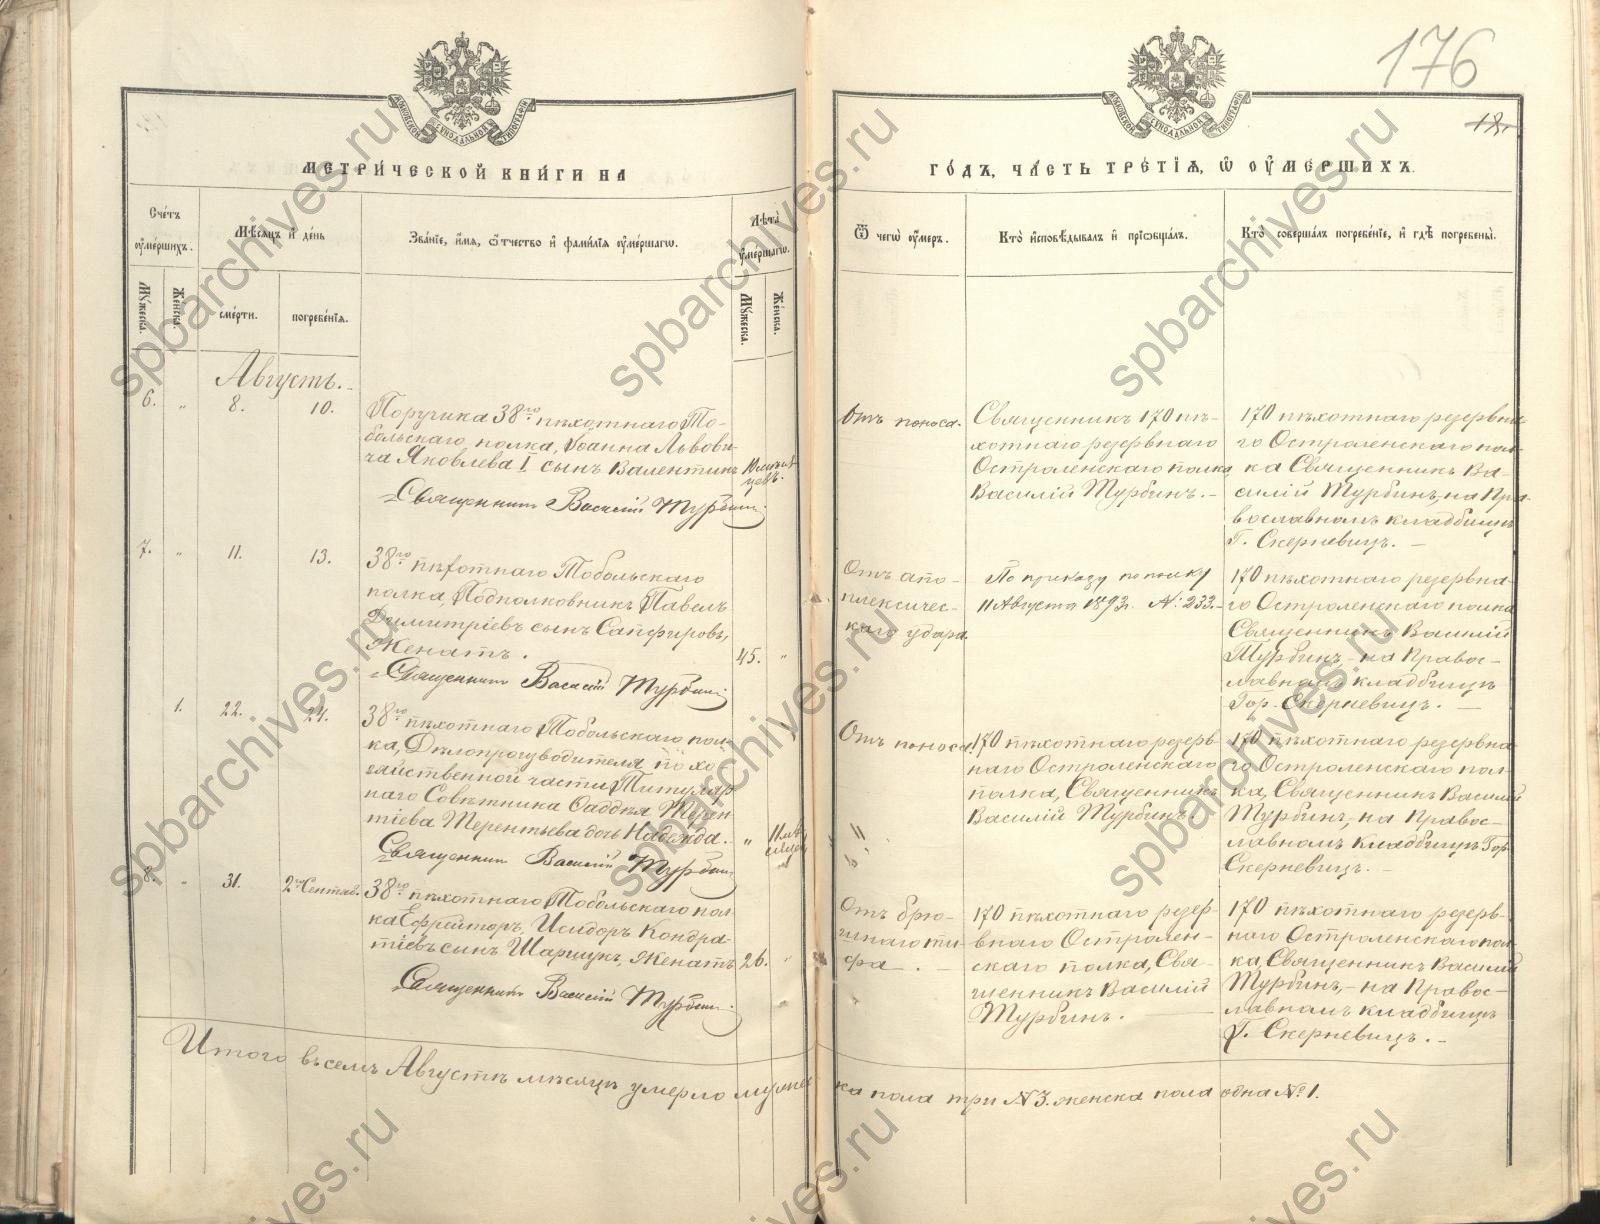 176
18.
МОСКОВСКОЙ СѴНОДАЛЬНОЙ ТИПОГРАФІИ
МОСКОВСКОЙ СѴНОДАЛЬНОЙ ТИПОГРАФІИ
МЕТРИ́ЧЕСКОЙ КНИ́ГИ НА
ГО́ДЪ, ЧА́СТЬ ТРЕ́ТІѦ, Ѡ ОУМЕ́РШИХЪ.
Сче́тъ оумѐршихъ.
Мѣ́сѧцъ и де́нь
Зва́нїе, и́мѧ, ѻ҆́тчество и фами́лїѧ оуме́ршагѡ.
Лѣта̀ оуме́ршагѡ.
Мꙋ́жеска.
Же́нска.
сме́рти.
погребе́нїѧ.
Мꙋ́жеска.
Же́нска.
Ѿ чегѡ̀ оу́меръ.
Кто̀ и҆сповѣ́дывалъ и҆ прїѡбща́лъ.
Кто̀ соверша́лъ погребе́нїе, и҆ гдѣ̀ погребены̀.
Августъ.
6. " 8. 10.
Поручика 38го пѣхотнаго То-
больскаго полка, Іоанна Львови-
ча Яковлева I сынъ Валентинъ
10 мѣся-
цевъ.
Священникъ Василій Турбинъ.
Отъ поноса.
Священникъ 170 пѣ-
хотнаго резервнаго
Остроленскаго полка,
Василій Турбинъ. -
170 пѣхотнаго резервна-
го Остроленскаго пол-
ка Священникъ Ва-
силій Турбинъ, на Пра-
вославномъ кладбищѣ
Г. Скерневицъ. —
7. " 11. 13.
38го пѣхотнаго Тобольскаго
полка, Подполковникъ Павелъ
Димитріевъ сынъ Сапфировъ,
Женатъ.
45. "
Священникъ Василій Турбинъ.
Отъ апо-
плексичес-
каго удара.
По приказу по полку
11 Августа 1893 г. № 233. -
170 пѣхотнаго резервна-
го Остроленскаго полка
Священникъ Василій
Турбинъ - на Правос-
лавномъ кладбищѣ
Гор. Скерневицъ. —
1. 22. 24.
38го пѣхотнаго Тобольскаго пол-
ка, Дѣлопроизводителя по хо-
зяйственной части Титуляр-
наго Совѣтника Фаддѣя Терен-
тіева Терентьева дочь Надежда.
" 11 мѣ-
сяцев
Священникъ Василій Турбинъ
Отъ поноса.
170 пѣхотнаго резерв-
наго Остроленскаго
полка, Священникъ
Василій Турбинъ.
170 пѣхотнаго резервна-
го Остроленскаго пол-
ка, Священникъ Василій
Турбинъ, - на Правос-
лавномъ кладбищѣ Гор.
Скерневицъ. —
8. " 31. 2го Сентяб.
38го пѣхотнаго Тобольскаго пол-
ка Ефрейторъ, Исидоръ Кондра-
тіевъ сынъ Шарщукъ, женатъ
26. "
Священникъ Василій Турбинъ.
Отъ брю-
шнаго ти-
фа. -
170 пѣхотнаго резер-
внаго Остролен-
скаго полка, Свя-
щенникъ Василій
Турбинъ. —
170 пѣхотнаго резерв-
наго Остроленскаго пол-
ка, Священникъ Василій
Турбинъ, - на Правос-
лавномъ кладбищѣ
Г. Скерневицъ. -
Итого въ семъ Августѣ мѣсяцѣ умерло мужес-
ка пола три №3. женска пола одна №1.
spbarchives.ru
spbarchives.ru
spbarchives.ru
spbarchives.ru
spbarchives.ru
spbarchives.ru
spbarchives.ru
spbarchives.ru
spbarchives.ru